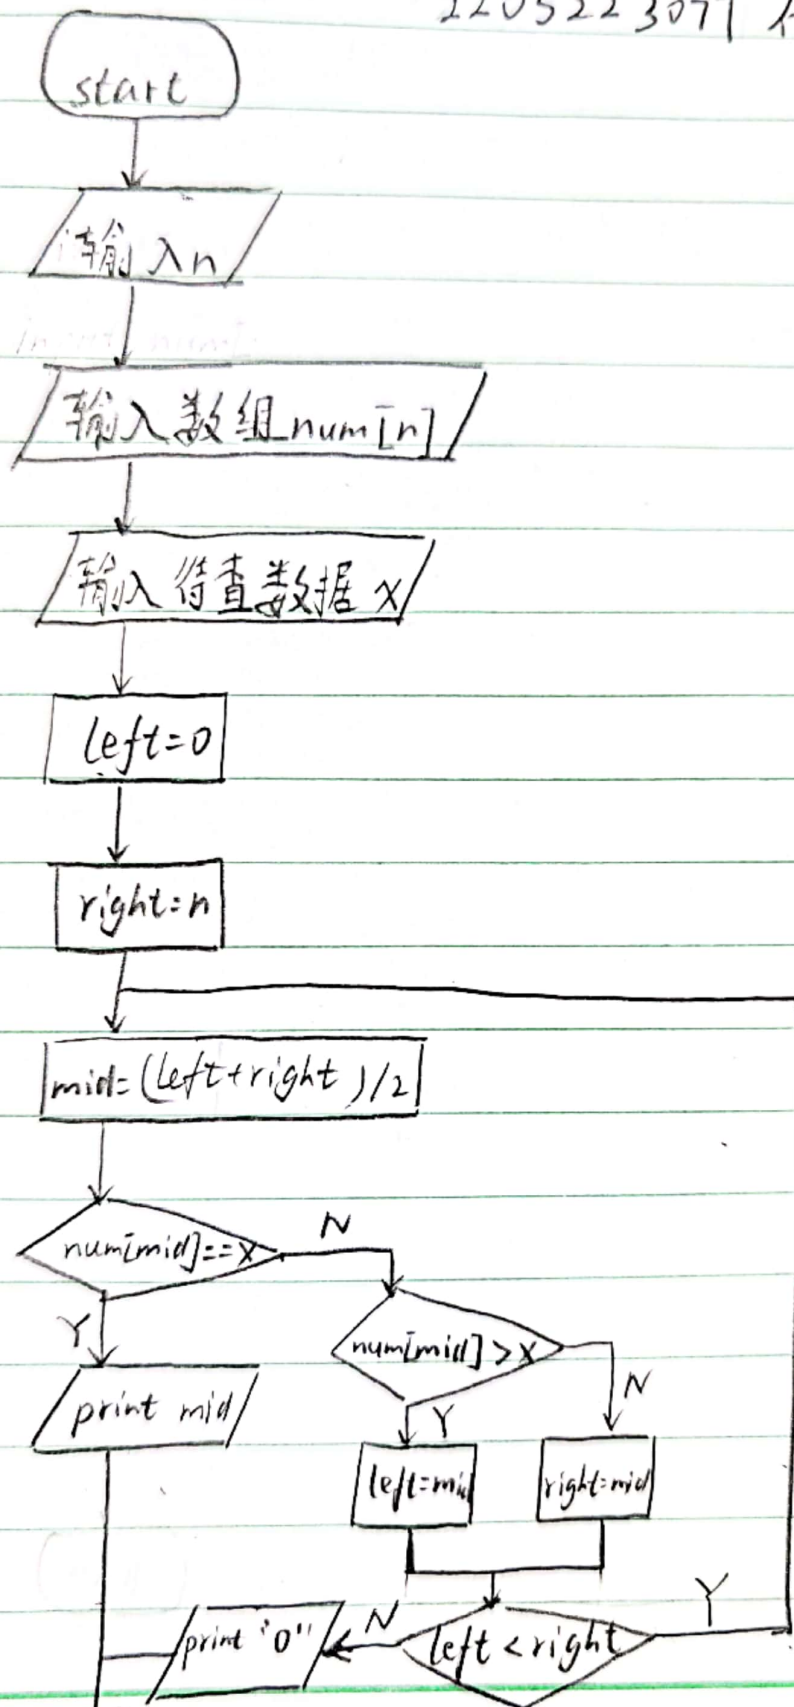 2205223071
start
请输入n
输入数组num[n]
输入待查数据 x
left=0
right=n
mid=(left+right)/2
num[mid]==x
N
Y
num[mid]>x
N
print mid
Y
left=mid
right=mid
Y
print "0"
N
left<right